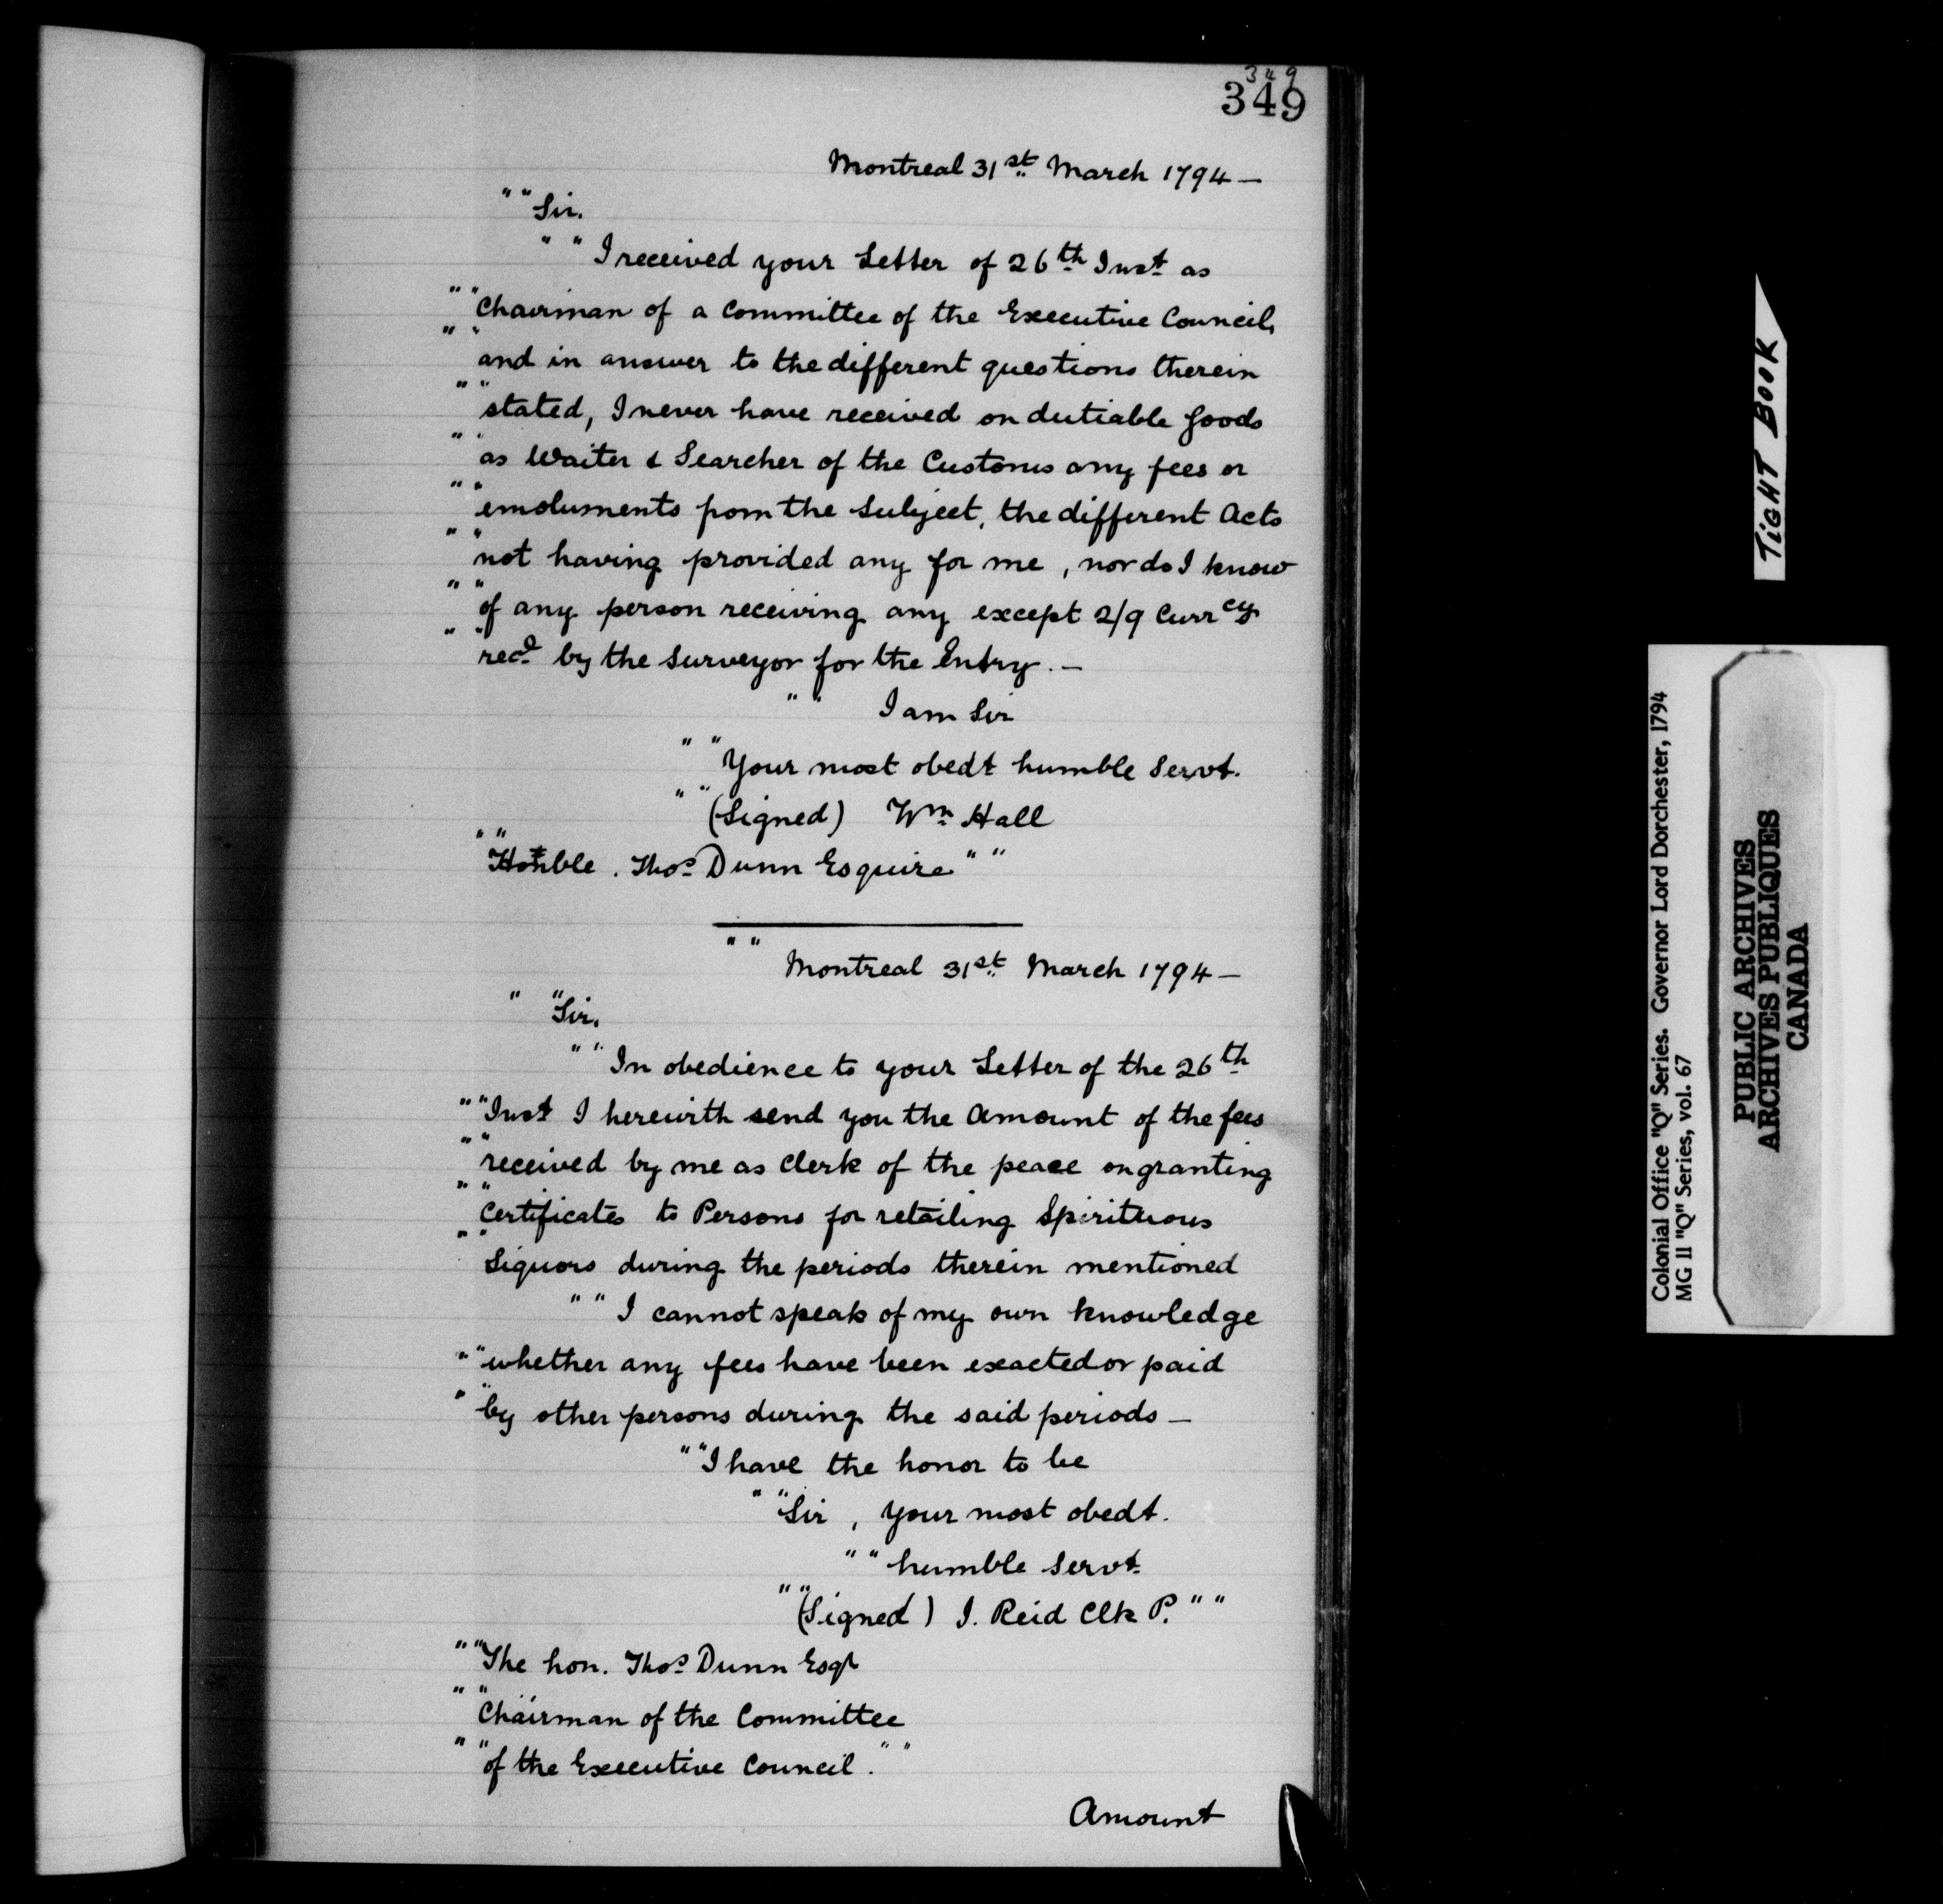 349
349
Montreal 31st March 1794 —
" " Sir.
" " I received your Letter of 26th Inst as
" " Chairman of a Committee of the Executive Council,
" " and in answer to the different questions therein
" " stated, I never have received on dutiable goods
" " as Waiter & Searcher of the Customs any fees or
" " emoluments from the Subject, the different Acts
" " not having provided any for me, nor do I know
" " of any person receiving any except 2/9 Currcy
" " recd by the Surveyor for the Entry. —
" " I am Sir
" " Your most obedt humble Servt.
" " (Signed) Wm Hall
" " Honble. Thos Dunn Esquire " "
" " Montreal 31st March 1794 —
" " Sir,
" " In obedience to your Letter of the 26th
" " Inst I herewith send you the Amount of the fees
" " received by me as Clerk of the peace on granting
" " Certificates to Persons for retailing Spirituous
" " Liquors during the periods therein mentioned
" " I cannot speak of my own knowledge
" " whether any fees have been exacted or paid
" " by other persons during the said periods —
" " I have the honor to be
" " Sir, your most obedt.
" " humble Servt
" " (Signed) I. Reid Clk P. " "
" " The hon. Thos Dunn Esqr
" " Chairman of the Committee
" " of the Executive Council. " "
Amount
TIGHT BOOK
Colonial Office "Q" Series. Governor Lord Dorchester, 1794
MG 11 "Q" Series, vol. 67
PUBLIC ARCHIVES
ARCHIVES PUBLIQUES
CANADA